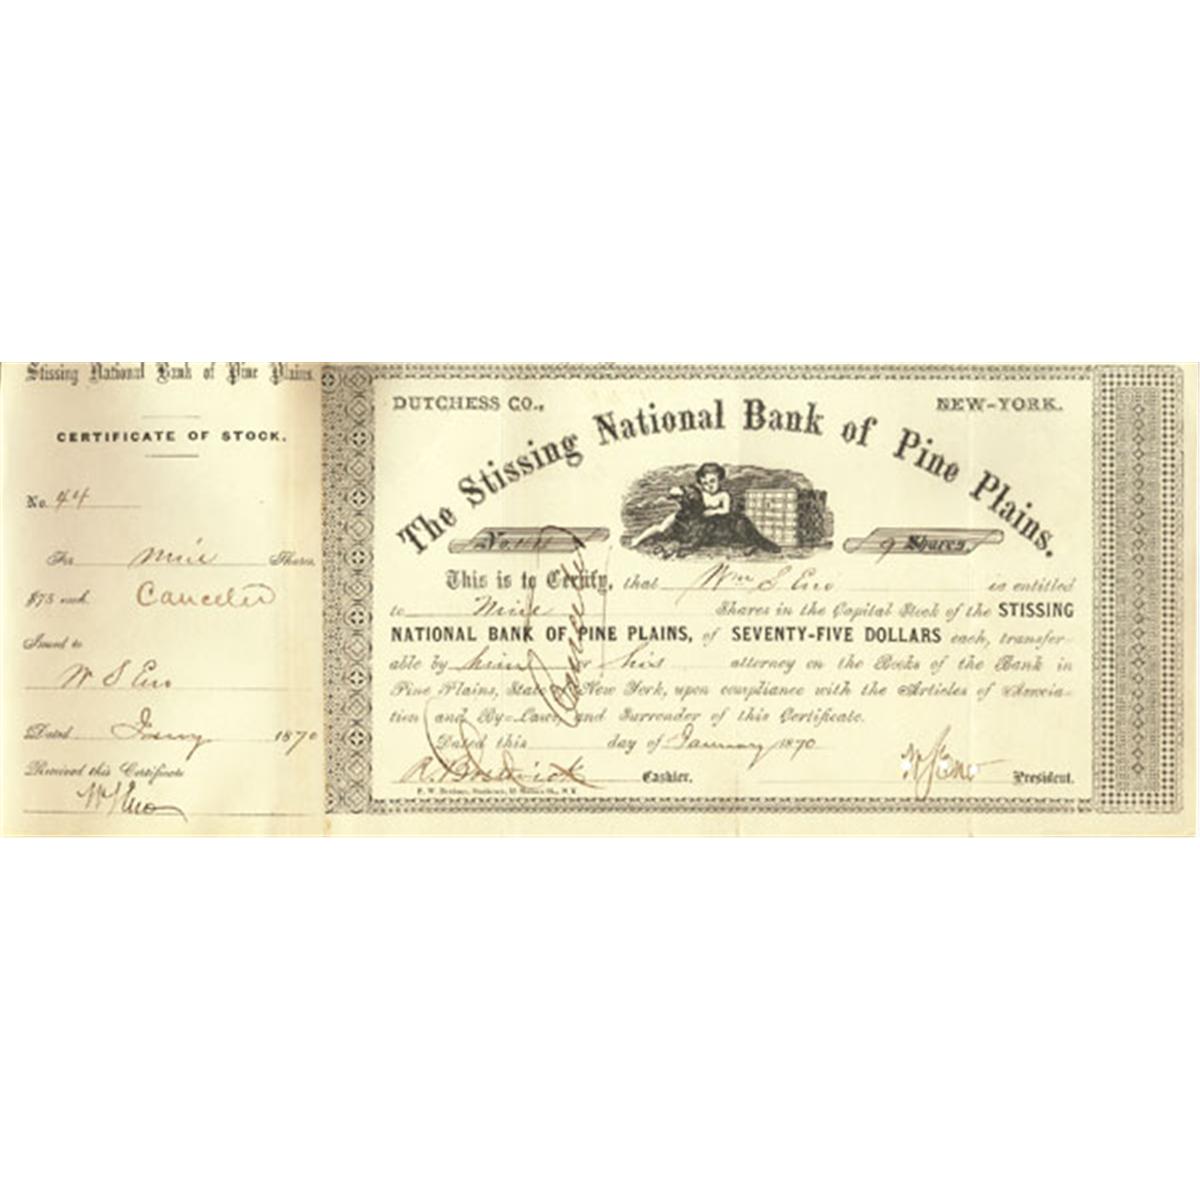 Stissing National Bank of Pine Plains.
CERTIFICATE OF STOCK.
No. 44
For Nine Shares
$75 each. Canceled
Issued to
W S Eno
Dated Jany 1870
Received this Certificate
W S Eno
DUTCHESS CO., NEW-YORK.
The Stissing National Bank of Pine Plains.
No. 9 Shares
This is to Certify, that Wm S Eno is entitled
to Nine Shares in the Capital Stock of the STISSING
NATIONAL BANK OF PINE PLAINS, of SEVENTY-FIVE DOLLARS each, transfer-
able by him or his attorney on the Books of the Bank in
Pine Plains, State of New York, upon compliance with the Articles of Associa-
tion and By-Laws, and Surrender of this Certificate.
Canceled
Dated this day of January 1870
R. Bostwick Cashier. W S Eno President.